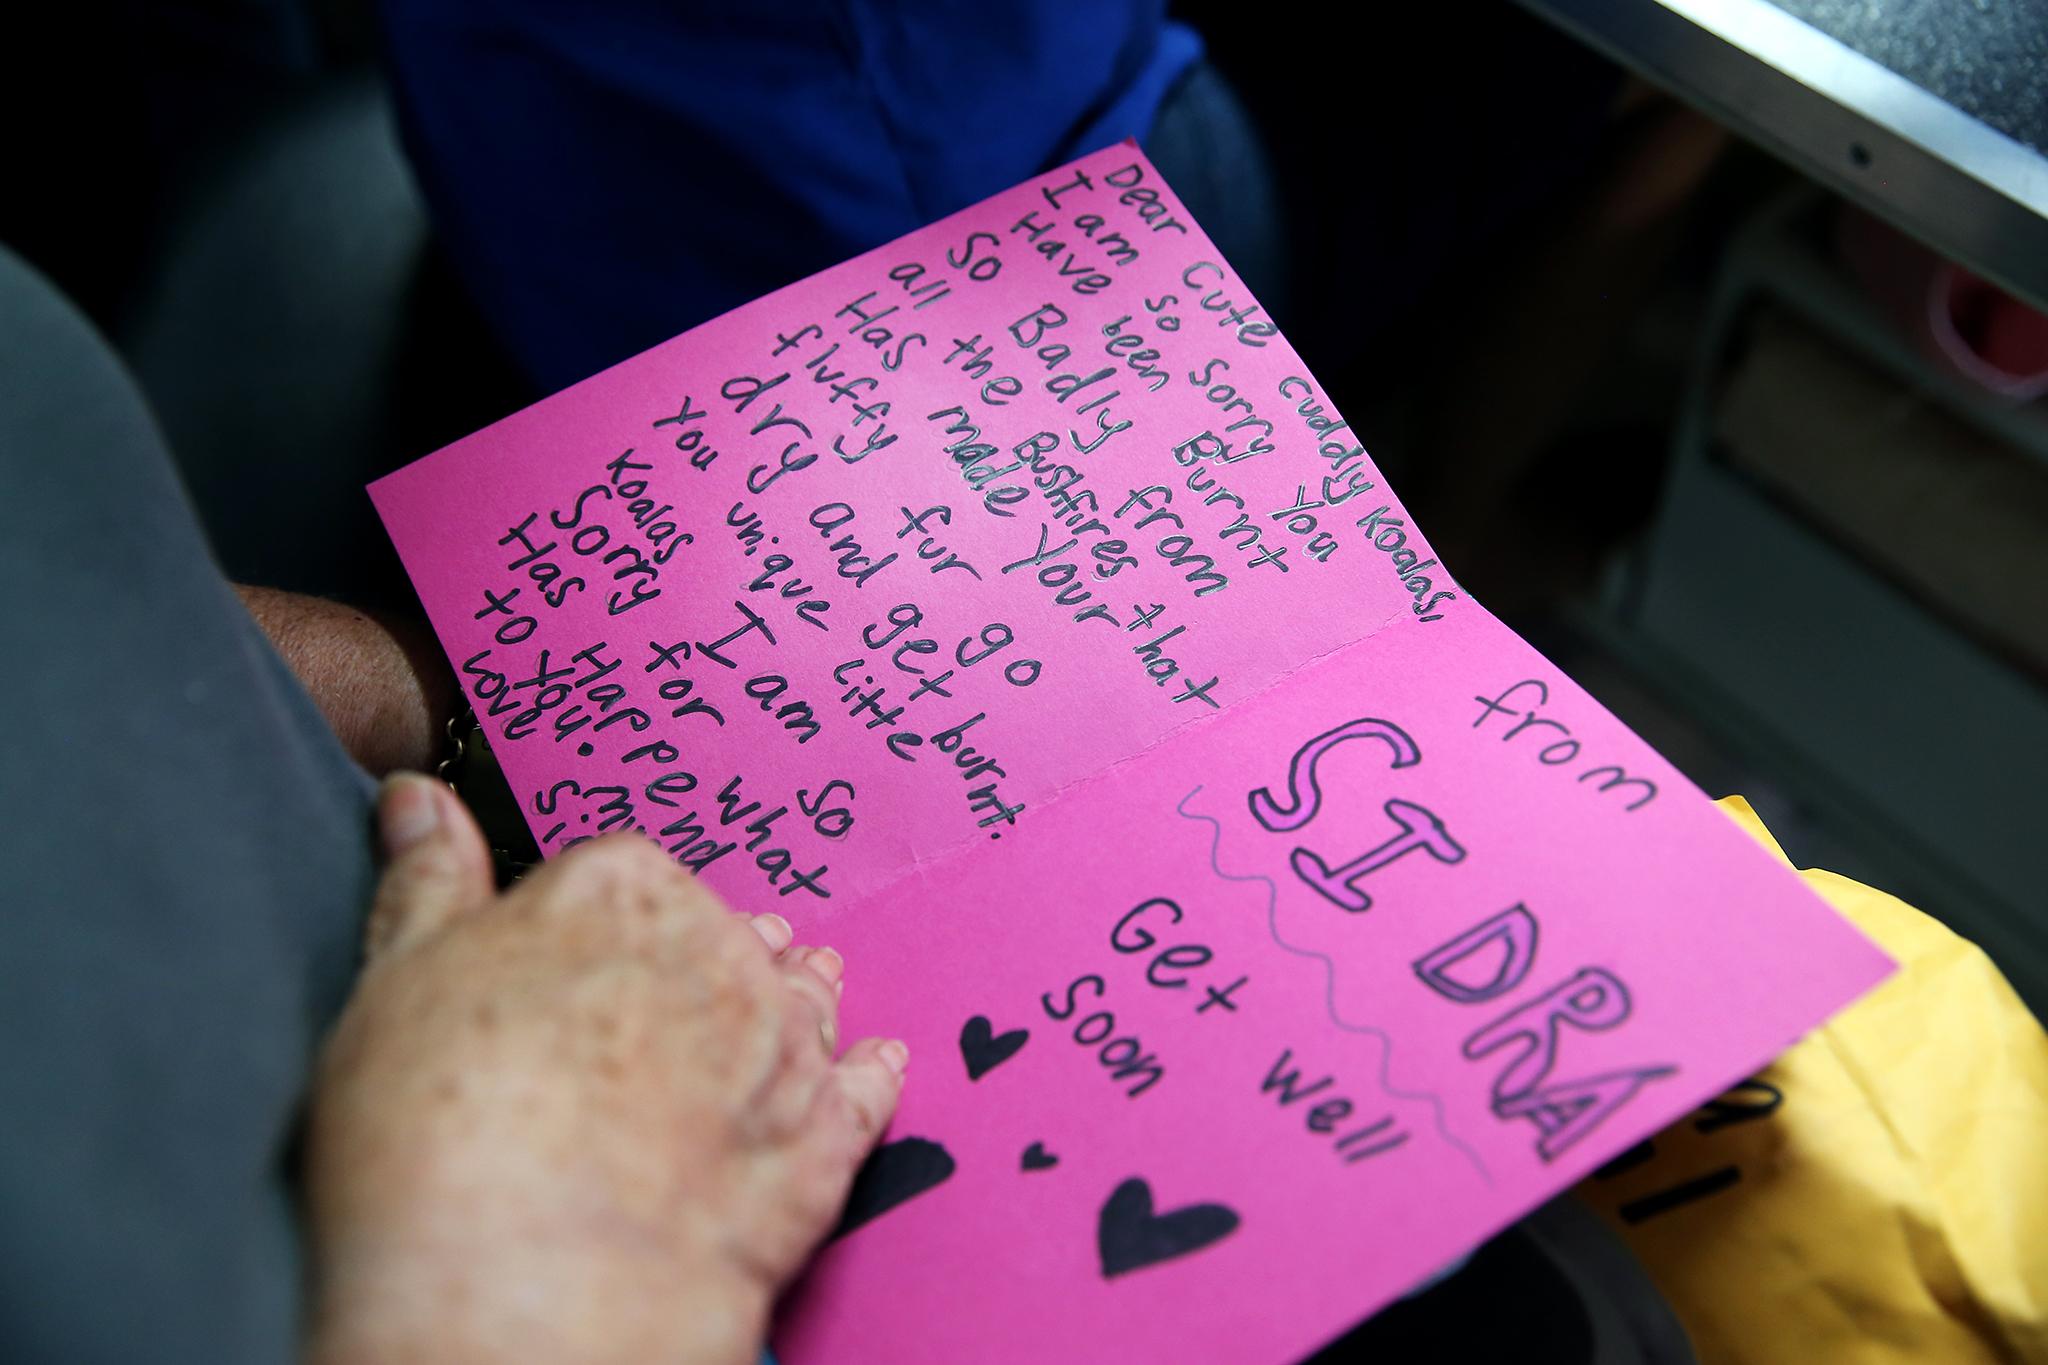 Dear Cute cuddly Koalas,
I am so sorry You
Have been Burnt
So Badly from
all the Bushfires that
Has made Your
fluffy fur go
dry and get burnt.
You unique Litte
Koalas I am So
Sorry for what
Has Happend
to you. my
Love
from
SIDRA
Get well
Soon